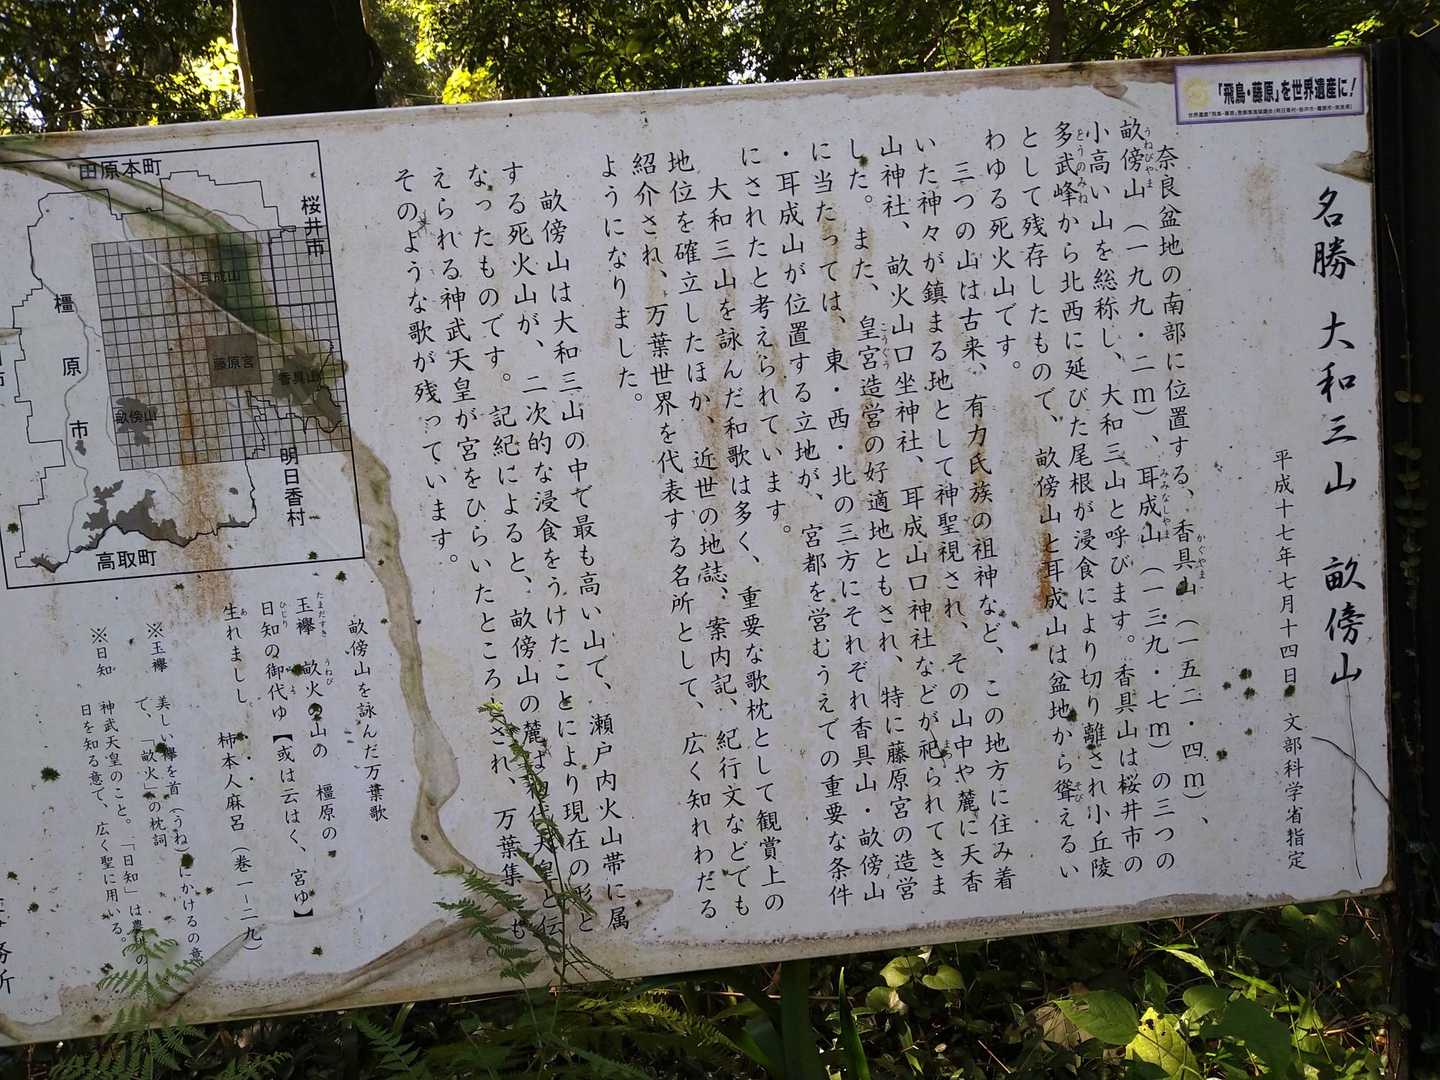 「飛鳥・藤原」を世界遺産に!
名勝 大和三山 畝傍山
平成十七年七月十四日 文部科学省指定
奈良盆地の南部に位置する、香具山(一五二・四m)、
畝傍山(一九九・二m)、耳成山(一三九・七m)の三つの
小高い山を総称し、大和三山と呼びます。香具山は桜井市の
多武峰から北西に延びた尾根が浸食により切り離され小丘陵
として残存したもので、畝傍山と耳成山は盆地から聳えるい
わゆる死火山です。
三つの山は古来、有力氏族の祖神など、この地方に住み着
いた神々が鎮まる地として神聖視され、その山中や麓に天香
山神社、畝火山口坐神社、耳成山口神社などが祀られてきま
した。また、皇宮造営の好適地ともされ、特に藤原宮の造営
に当たっては、東・西・北の三方にそれぞれ香具山・畝傍山
・耳成山が位置する立地が、宮都を営むうえでの重要な条件
にされたと考えられています。
大和三山を詠んだ和歌は多く、重要な歌枕として観賞上の
地位を確立したほか、近世の地誌、案内記、紀行文などでも
紹介され、万葉世界を代表する名所として、広く知れわたる
ようになりました。
畝傍山は大和三山の中で最も高い山で、瀬戸内火山帯に属
する死火山が、二次的な浸食をうけたことにより現在の形と
なったものです。記紀によると、畝傍山の麓は初代天皇と伝
えられる神武天皇が宮をひらいたところとされ、万葉集にも
そのような歌が残っています。
畝傍山を詠んだ万葉歌
玉襷 畝火の山の 橿原の
日知の御代ゆ【或は云はく、宮ゆ】
生れましし・・・ 柿本人麻呂(巻一ー二九)
※玉襷 美しい襷を首(うね)にかけるの意
で、「畝火」の枕詞
※日知 神武天皇のこと。「日知」は農耕の
日を知る意で、広く聖に用いる。
田原本町
桜井市
耳成山
橿原市
藤原宮
香具山
畝傍山
明日香村
高取町
務所